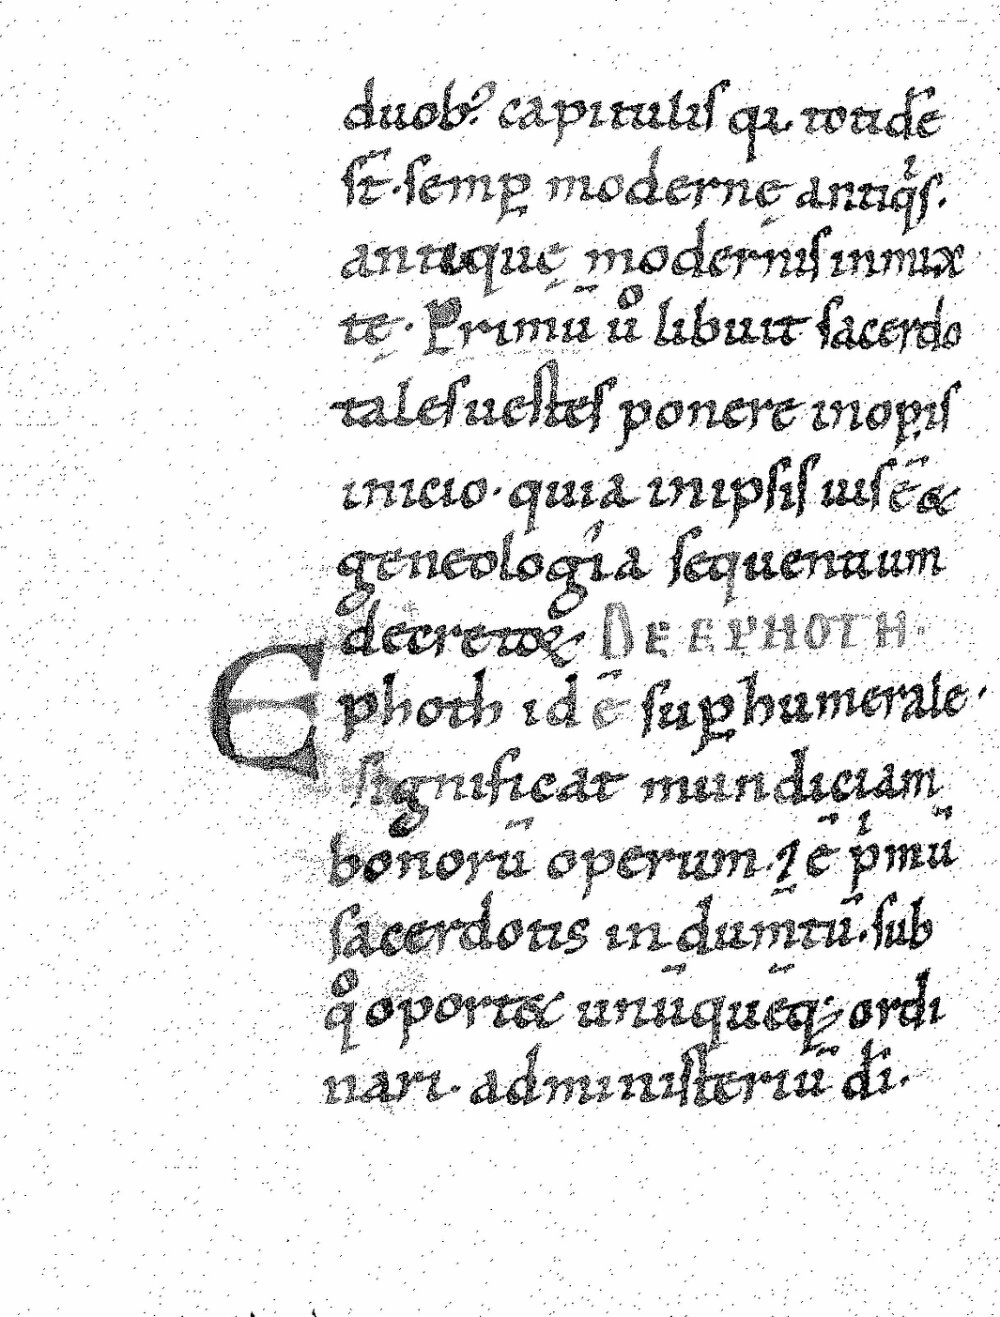 duob; capitulis qi. totidē
st̄. semꝑ modernę antiqͥs.
antiquę modernis inmix
tę. Primū uͦ libuit sacerdo
tales uestes ponere in oꝑis
inicio. quia in ipsis iusē &
geneologia sequentium
decretoꝝ. DE EPHOTH.
Ephoth id ē suꝑhumerale.
significat mundiciam
bonorū operum. ⁊ ē pͥmū
sacerdotis indumm̄tū. sub
qͦ oport& unūquēq; ordi
nari. ad ministeriū dī.